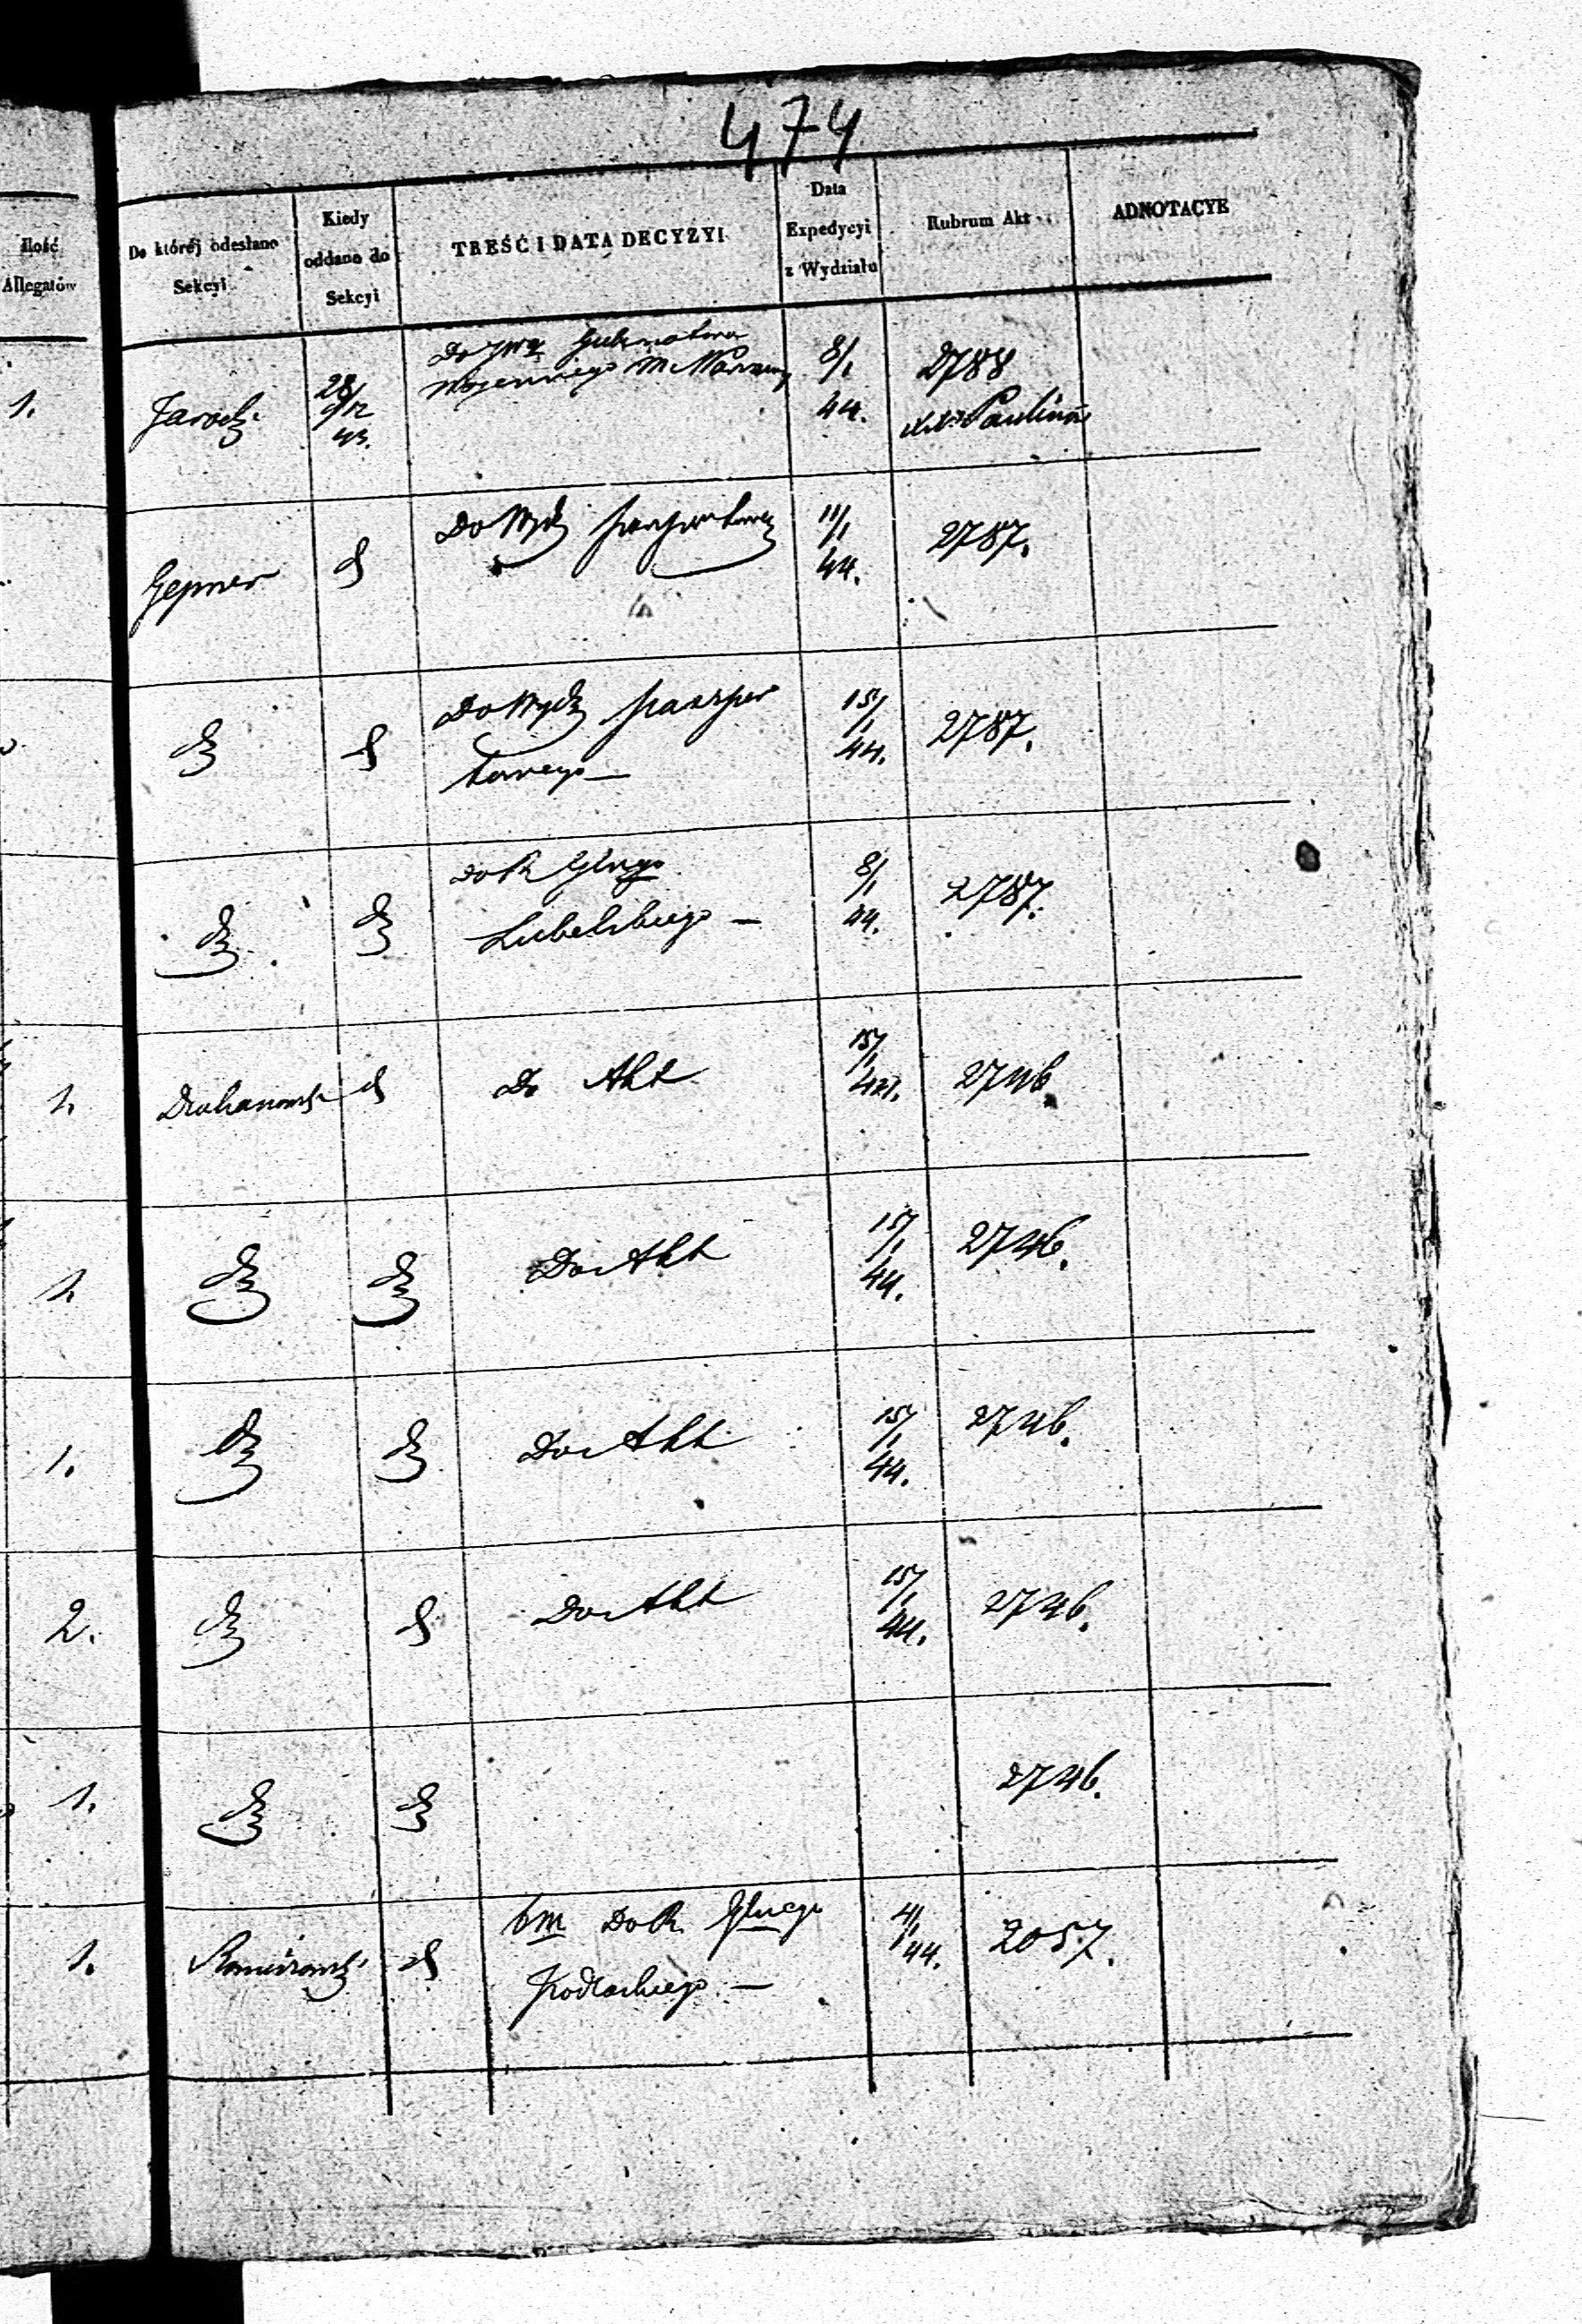 474
Ilość
Allegatów
Do której odesłano
Sekcyi
Kiedy
oddano do
Sekcyi
TREŚĆ I DATA DECYZYI
Data
Expedycyi
z Wydziału
Rubrum Akt
ADNOTACYE
1.
28/12
43.
Do JW Gubernatora
Wojennego M. Warszawy
8/1
44.
2788
Paulina
Gepner
d
Do Wydz
11/1
44.
2787.
dº
d
Do Wydz paszpor
towego —
15/1
44.
2787.
dº
dº
do R. Gługo
Lubelskiego —
8/1
44.
2787.
1.
d
Do Akt
15/1
44.
2746
1.
dº
dº
Do Akt
15/1
44.
2746.
1.
dº
dº
Do Akt
15/1
44.
2746.
2.
dº
d
Do Akt
15/1
44.
2746.
1.
dº
dº
2746.
1.
d
bm Do R. Głuego
Podlaskiego. —
4/1
44.
2057.